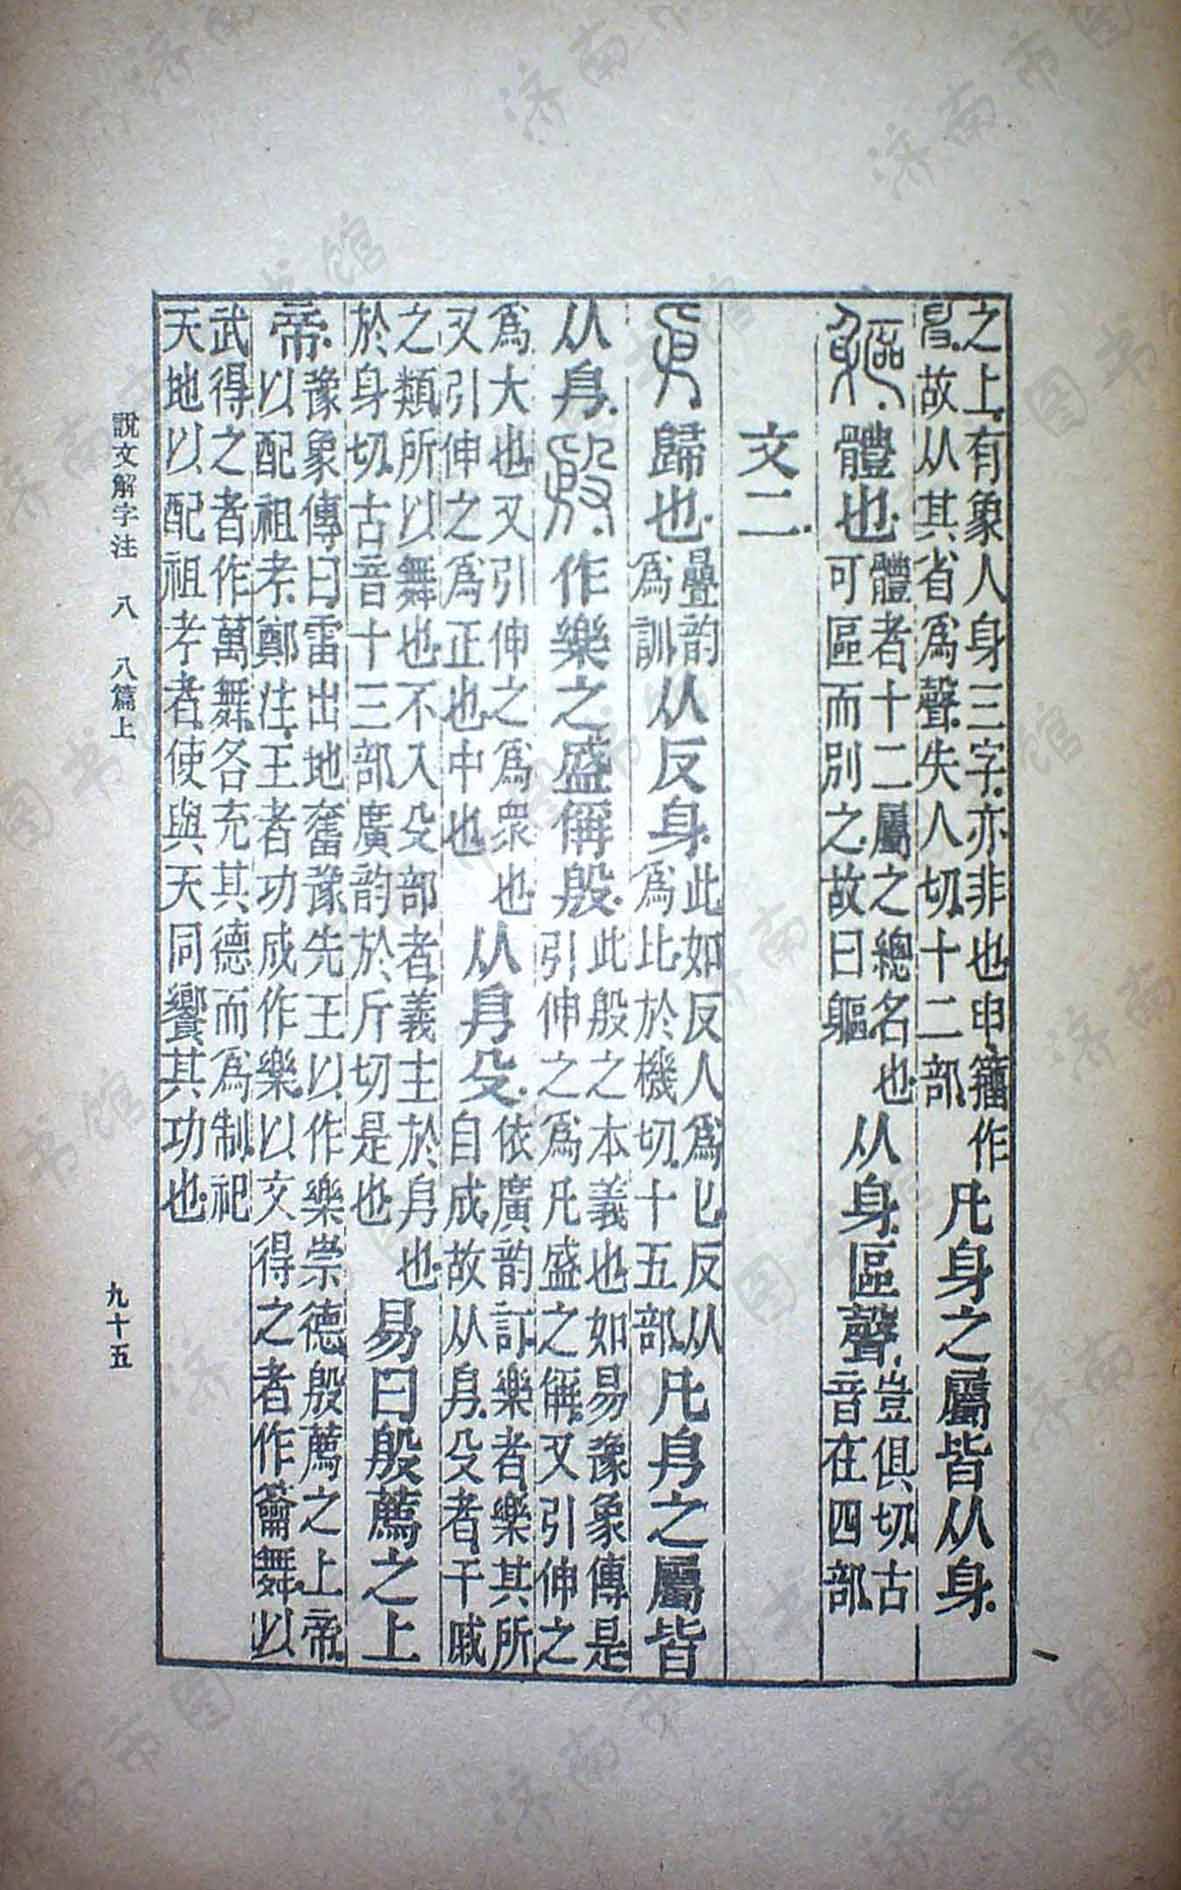 之上有象人身三字亦非也申籒作
故从其省爲聲失人切十二部
凡身之屬皆从身
軀體也
體者十二屬之總名也
可區而別之故曰軀
从身區聲
豈俱切古
音在四部
文二
㐆歸也
疊韵
爲訓
从反身
此如反人爲匕反从
爲比於機切十五部
凡㐆之屬皆
从㐆殷作樂之盛稱殷
此殷之本義也如易豫象傳是
引伸之爲凡盛之稱又引伸之
爲大也又引伸之爲衆也
又引伸之爲正也中也
从㐆殳
依廣韵訂樂者樂其所
自成故从㐆殳者干戚
之類所以舞也不入殳部者義主於㐆也
於身切古音十三部廣韵於斤切是也
易曰殷薦之上
帝
豫象傳曰雷出地奮豫先王以作樂崇德殷薦之上帝
以配祖考鄭注王者功成作樂以文得之者作籥舞以
武得之者作萬舞各充其德而爲制祀
天地以配祖考者使與天同饗其功也
說文解字注 八 八篇上
九十五
济南市图书馆